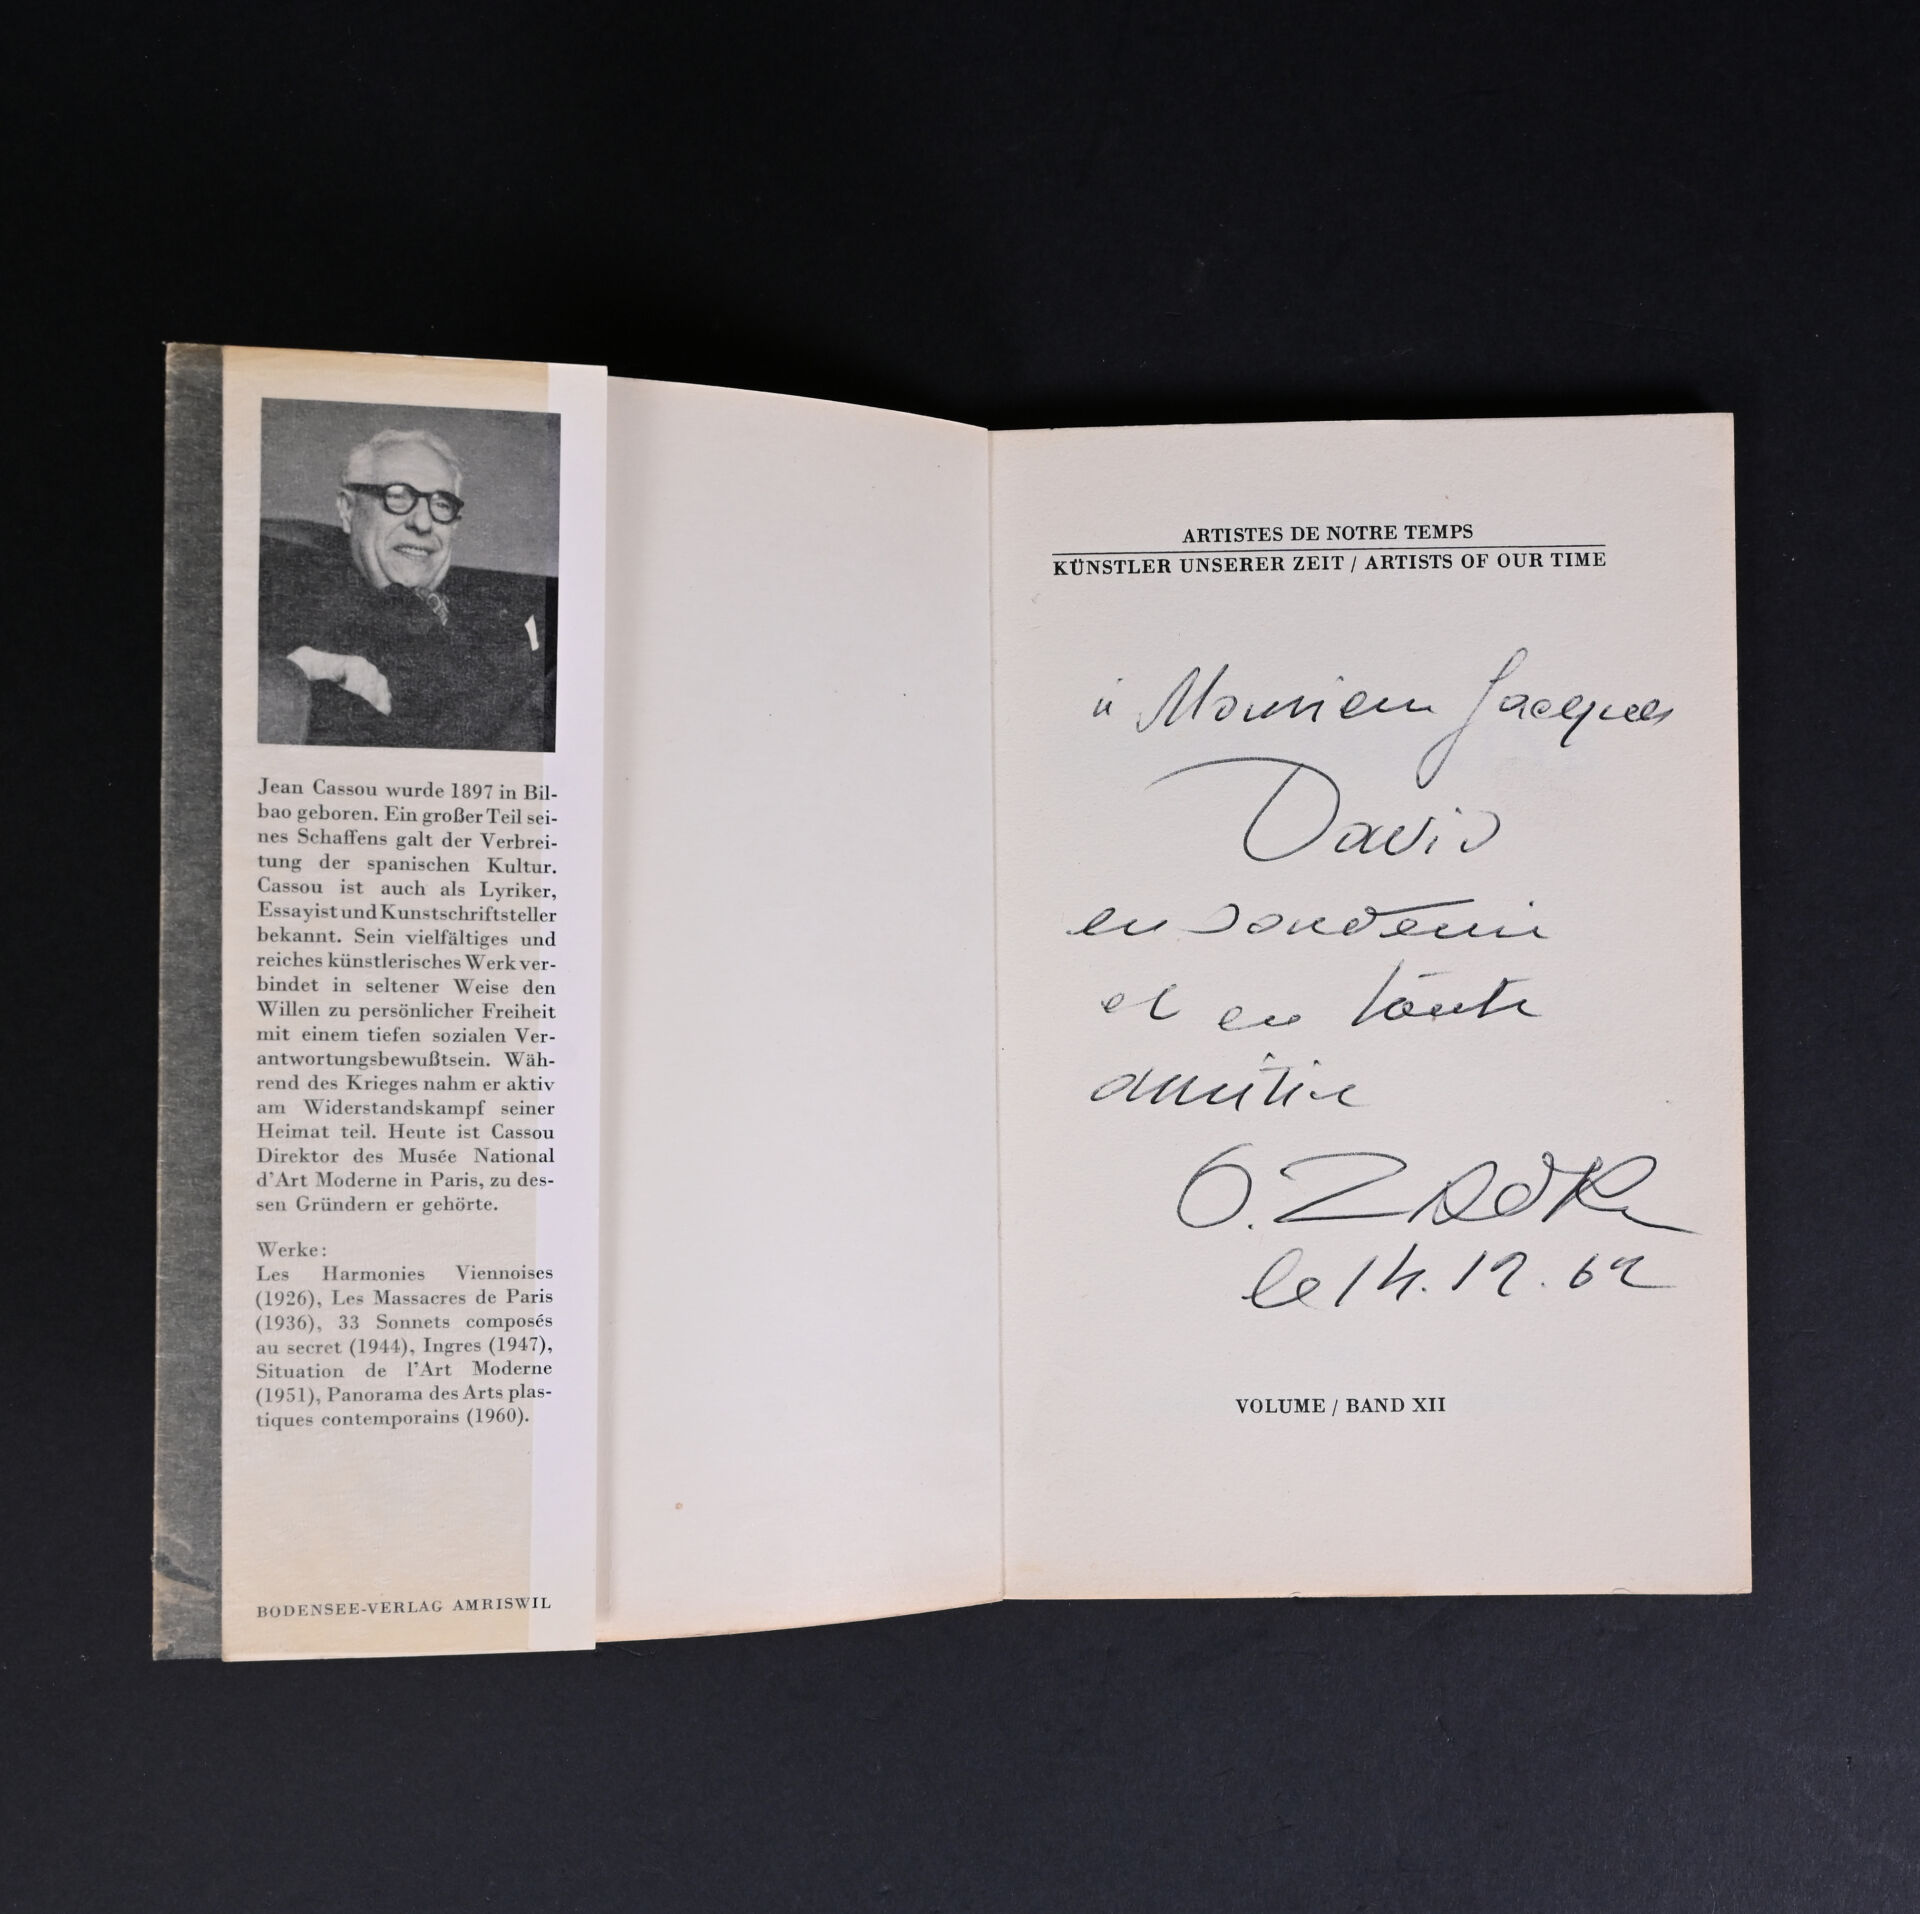 Jean Cassou wurde 1897 in Bil-
bao geboren. Ein großer Teil sei-
nes Schaffens galt der Verbrei-
tung der spanischen Kultur.
Cassou ist auch als Lyriker,
Essayist und Kunstschriftsteller
bekannt. Sein vielfältiges und
reiches künstlerisches Werk ver-
bindet in seltener Weise den
Willen zu persönlicher Freiheit
mit einem tiefen sozialen Ver-
antwortungsbewußtsein. Wäh-
rend des Krieges nahm er aktiv
am Widerstandskampf seiner
Heimat teil. Heute ist Cassou
Direktor des Musée National
d'Art Moderne in Paris, zu des-
sen Gründern er gehörte.
Werke:
Les Harmonies Viennoises
(1926), Les Massacres de Paris
(1936), 33 Sonnets composés
au secret (1944), Ingres (1947),
Situation de l'Art Moderne
(1951), Panorama des Arts plas-
tiques contemporains (1960).
BODENSEE-VERLAG AMRISWIL
ARTISTES DE NOTRE TEMPS
KÜNSTLER UNSERER ZEIT / ARTISTS OF OUR TIME
à Monsieur Jacques
David
en souvenir
et en toute
amitié
O. Zadkine
le 14.12.62
VOLUME / BAND XII